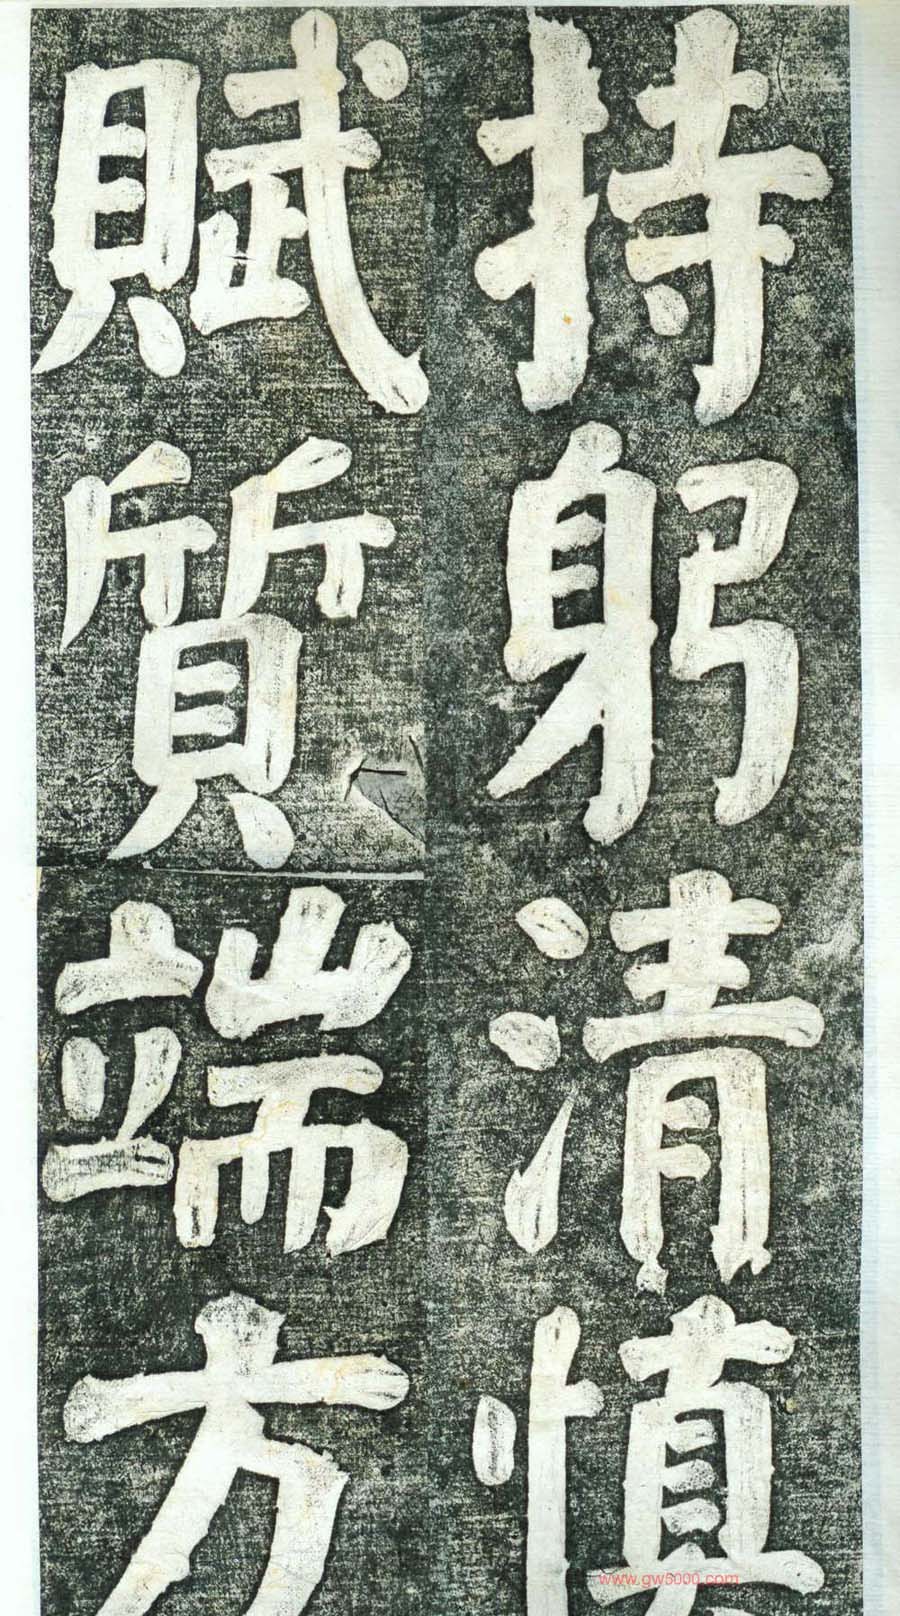 持躬清慎
賦質端方
www.gw5000.com